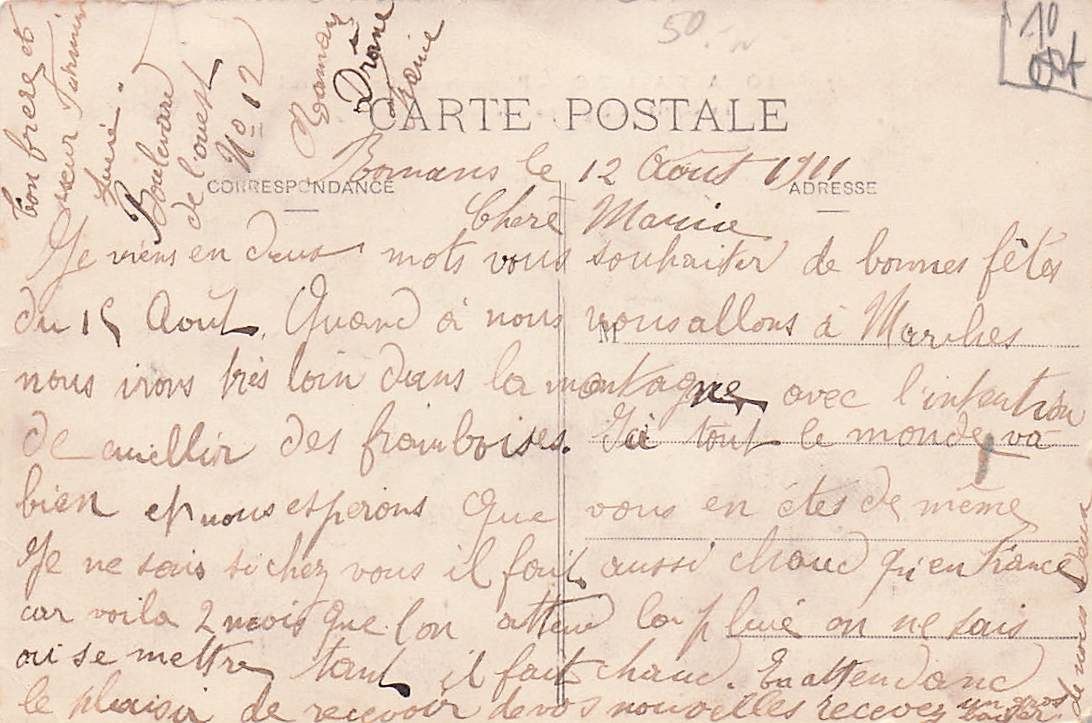 50.-
10
CARTE POSTALE
CORRESPONDANCE
ADRESSE
M
Romans le 12 Août 1911
Cherè Marie
Je viens en deux mots vous souhaiter de bonnes fêtes
du 15 Août. Quand à nous nous allons à Marches
nous irons très loin dans la montagne, avec l'intention
de cueillir des framboises. Ici tout le monde va
bien et nous esperons que vous en étes de même
Je ne sais si chez vous il fait aussi chaud qu'en France
car voila 2 mois que l'on attend la pluie on ne sais
ou se mettre tant il fait chaud. En attendant
le plaisir de recevoir de vos nouvelles recever un gros
de nous
ton frere et
sœur
Boulevard
de l'ouest
No 12
Romans
Drôme